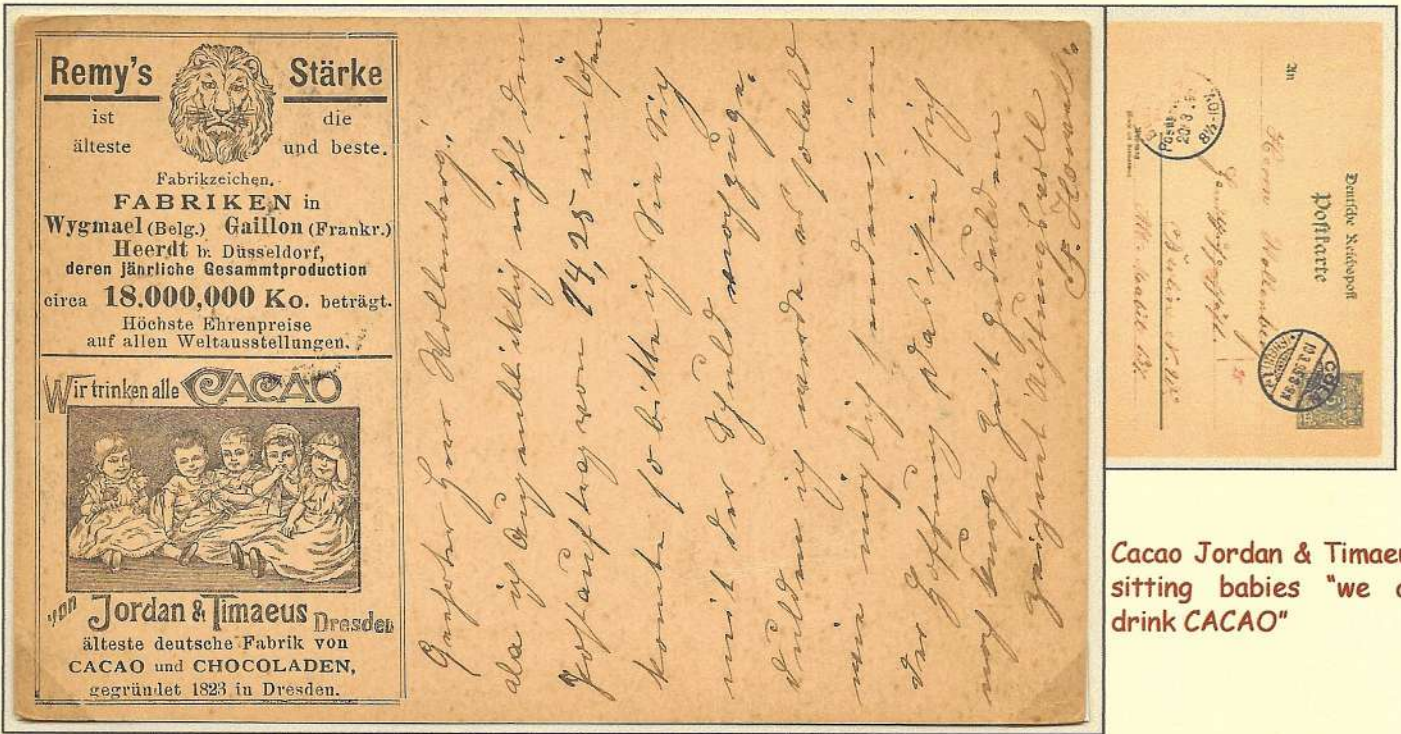 Remy's Stärke
ist die
älteste und beste.
Fabrikzeichen.
FABRIKEN in
Wygmael (Belg.) Gaillon (Frankr.)
Heerdt b. Düsseldorf,
deren jährliche Gesammtproduction
circa 18.000,000 Ko. beträgt.
Höchste Ehrenpreise
auf allen Weltausstellungen.
Wir trinken alle CACAO
von Jordan & Timaeus Dresden
älteste deutsche Fabrik von
CACAO und CHOCOLADEN,
gegründet 1823 in Dresden.
Geehrter Herr Wollenberg!
als ich Augenblicklich nicht den
Postauftrag von 74,25 einlösen
konnte so bitte ich Sie
mit der Schuld
dulden ich werde es sobald
mir möglich senden, in
der Hoffnung daß Sie sich
noch kurze Zeit gedulden
zeichnet Achtungsvoll
Deutsche Reichspost
Postkarte
An
Herrn Wollenberg
Berlin
20/3
8½-10V
Cacao Jordan & Timaeu
sitting babies "we a
drink CACAO"